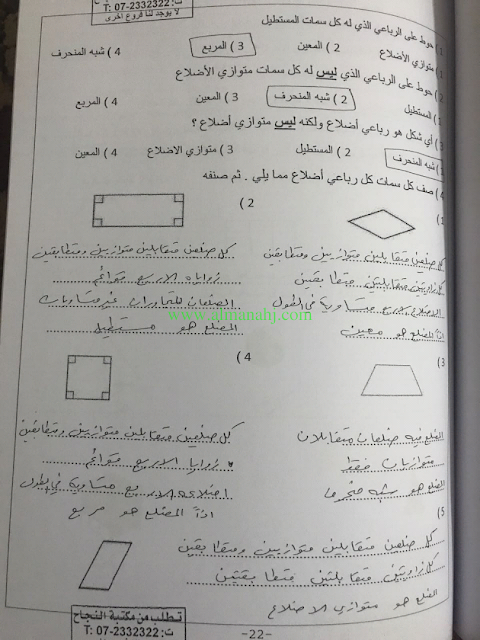 ت: 2332322-07 :T
لا يوجد لنا فروع أخرى
1) حوط على الرباعي الذي له كل سمات المستطيل
1) متوازي الأضلاع 2) المعين 3) المربع 4) شبه المنحرف
2) حوط على الرباعي الذي ليس له كل سمات متوازي الأضلاع
1) المستطيل 2) شبه المنحرف 3) المعين 4) المربع
3) أي شكل هو رباعي أضلاع ولكنه ليس متوازي أضلاع ؟
1) شبه المنحرف 2) المستطيل 3) متوازي الاضلاع 4) المعين
4) صف كل سمات كل رباعي أضلاع مما يلي . ثم صنفه
1)
كل ضلعين متقابلين متوازيين ومتطابقين
كل زاويتين متقابلتين متطابقتين
الاضلاع الاربع متساوية في الطول
اذاً المضلع هو معين
2)
كل ضلعين متقابلين متوازيين ومتطابقين
زواياه الاربع قوائم
الضلعان المتجاوران غير متساويان
المضلع هو مستطيل
www.almanahj.com
3)
المضلع فيه ضلعان متقابلان
متوازيان فقط
المضلع هو شبه منحرف
4)
كل ضلعين متقابلين متوازيين ومتطابقين
زوايا الاربع قوائم
اضلاعه الاربع متساوية في الطول
اذاً المضلع هو مربع
5)
كل ضلعين متقابلين متوازيين ومتطابقين
كل زاويتين متقابلتين متطابقتين
المضلع هو متوازي الاضلاع
تطلب من مكتبة النجاح
ت: 2332322-07 :T
-22-